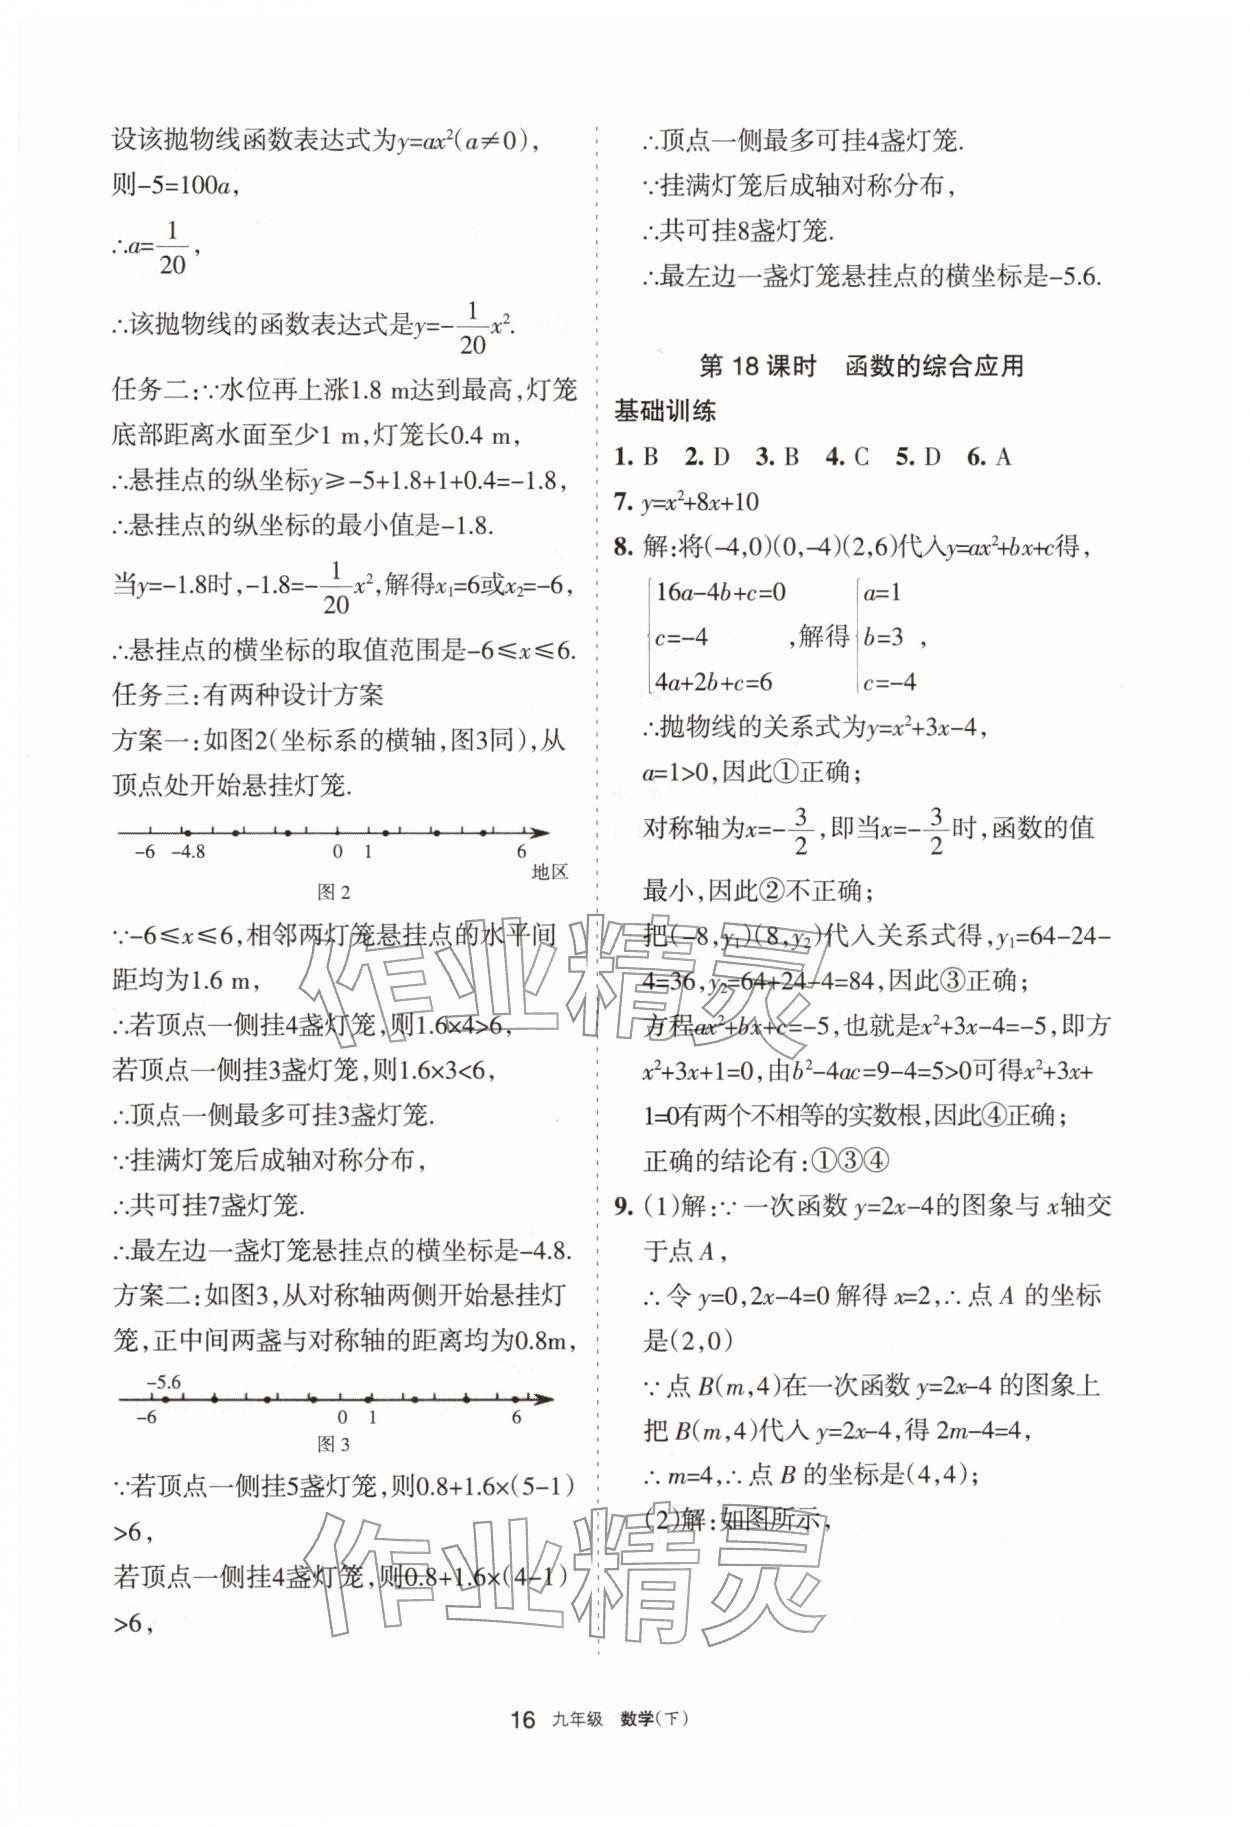 设该抛物线函数表达式为y=ax²(a≠0),
则-5=100a,
∴a=1/20,
∴该抛物线的函数表达式是y=-1/20x².
任务二:∵水位再上涨1.8 m达到最高,灯笼
底部距离水面至少1 m,灯笼长0.4 m,
∴悬挂点的纵坐标y≥-5+1.8+1+0.4=-1.8,
∴悬挂点的纵坐标的最小值是-1.8.
当y=-1.8时,-1.8=-1/20x²,解得x₁=6或x₂=-6,
∴悬挂点的横坐标的取值范围是-6≤x≤6.
任务三:有两种设计方案
方案一:如图2(坐标系的横轴,图3同),从
顶点处开始悬挂灯笼.
-6 -4.8 0 1 6
地区
图2
∵-6≤x≤6,相邻两灯笼悬挂点的水平间
距均为1.6 m,
∴若顶点一侧挂4盏灯笼,则1.6×4>6,
若顶点一侧挂3盏灯笼,则1.6×3<6,
∴顶点一侧最多可挂3盏灯笼.
∵挂满灯笼后成轴对称分布,
∴共可挂7盏灯笼.
∴最左边一盏灯笼悬挂点的横坐标是-4.8.
方案二:如图3,从对称轴两侧开始悬挂灯
笼,正中间两盏与对称轴的距离均为0.8m,
-5.6
-6 0 1 6
图3
∵若顶点一侧挂5盏灯笼,则0.8+1.6×(5-1)
>6,
若顶点一侧挂4盏灯笼,则0.8+1.6×(4-1)
>6,
∴顶点一侧最多可挂4盏灯笼.
∵挂满灯笼后成轴对称分布,
∴共可挂8盏灯笼.
∴最左边一盏灯笼悬挂点的横坐标是-5.6.
第18课时 函数的综合应用
基础训练
1. B 2. D 3. B 4. C 5. D 6. A
7. y=x²+8x+10
8. 解:将(-4,0)(0,-4)(2,6)代入y=ax²+bx+c得,
16a-4b+c=0 a=1
c=-4 ,解得 b=3 ,
4a+2b+c=6 c=-4
∴抛物线的关系式为y=x²+3x-4,
a=1>0,因此①正确;
对称轴为x=-3/2,即当x=-3/2时,函数的值
最小,因此②不正确;
把(-8,y₁)(8,y₂)代入关系式得,y₁=64-24-
4=36,y₂=64+24-4=84,因此③正确;
方程ax²+bx+c=-5,也就是x²+3x-4=-5,即方
x²+3x+1=0,由b²-4ac=9-4=5>0可得x²+3x+
1=0有两个不相等的实数根,因此④正确;
正确的结论有:①③④
9. (1)解:∵一次函数y=2x-4的图象与x轴交
于点A,
∴令y=0,2x-4=0解得x=2,∴点A的坐标
是(2,0)
∵点B(m,4)在一次函数y=2x-4的图象上
把B(m,4)代入y=2x-4,得2m-4=4,
∴m=4,∴点B的坐标是(4,4);
(2)解:如图所示,
作业精灵
作业精灵
16 九年级 数学(下)